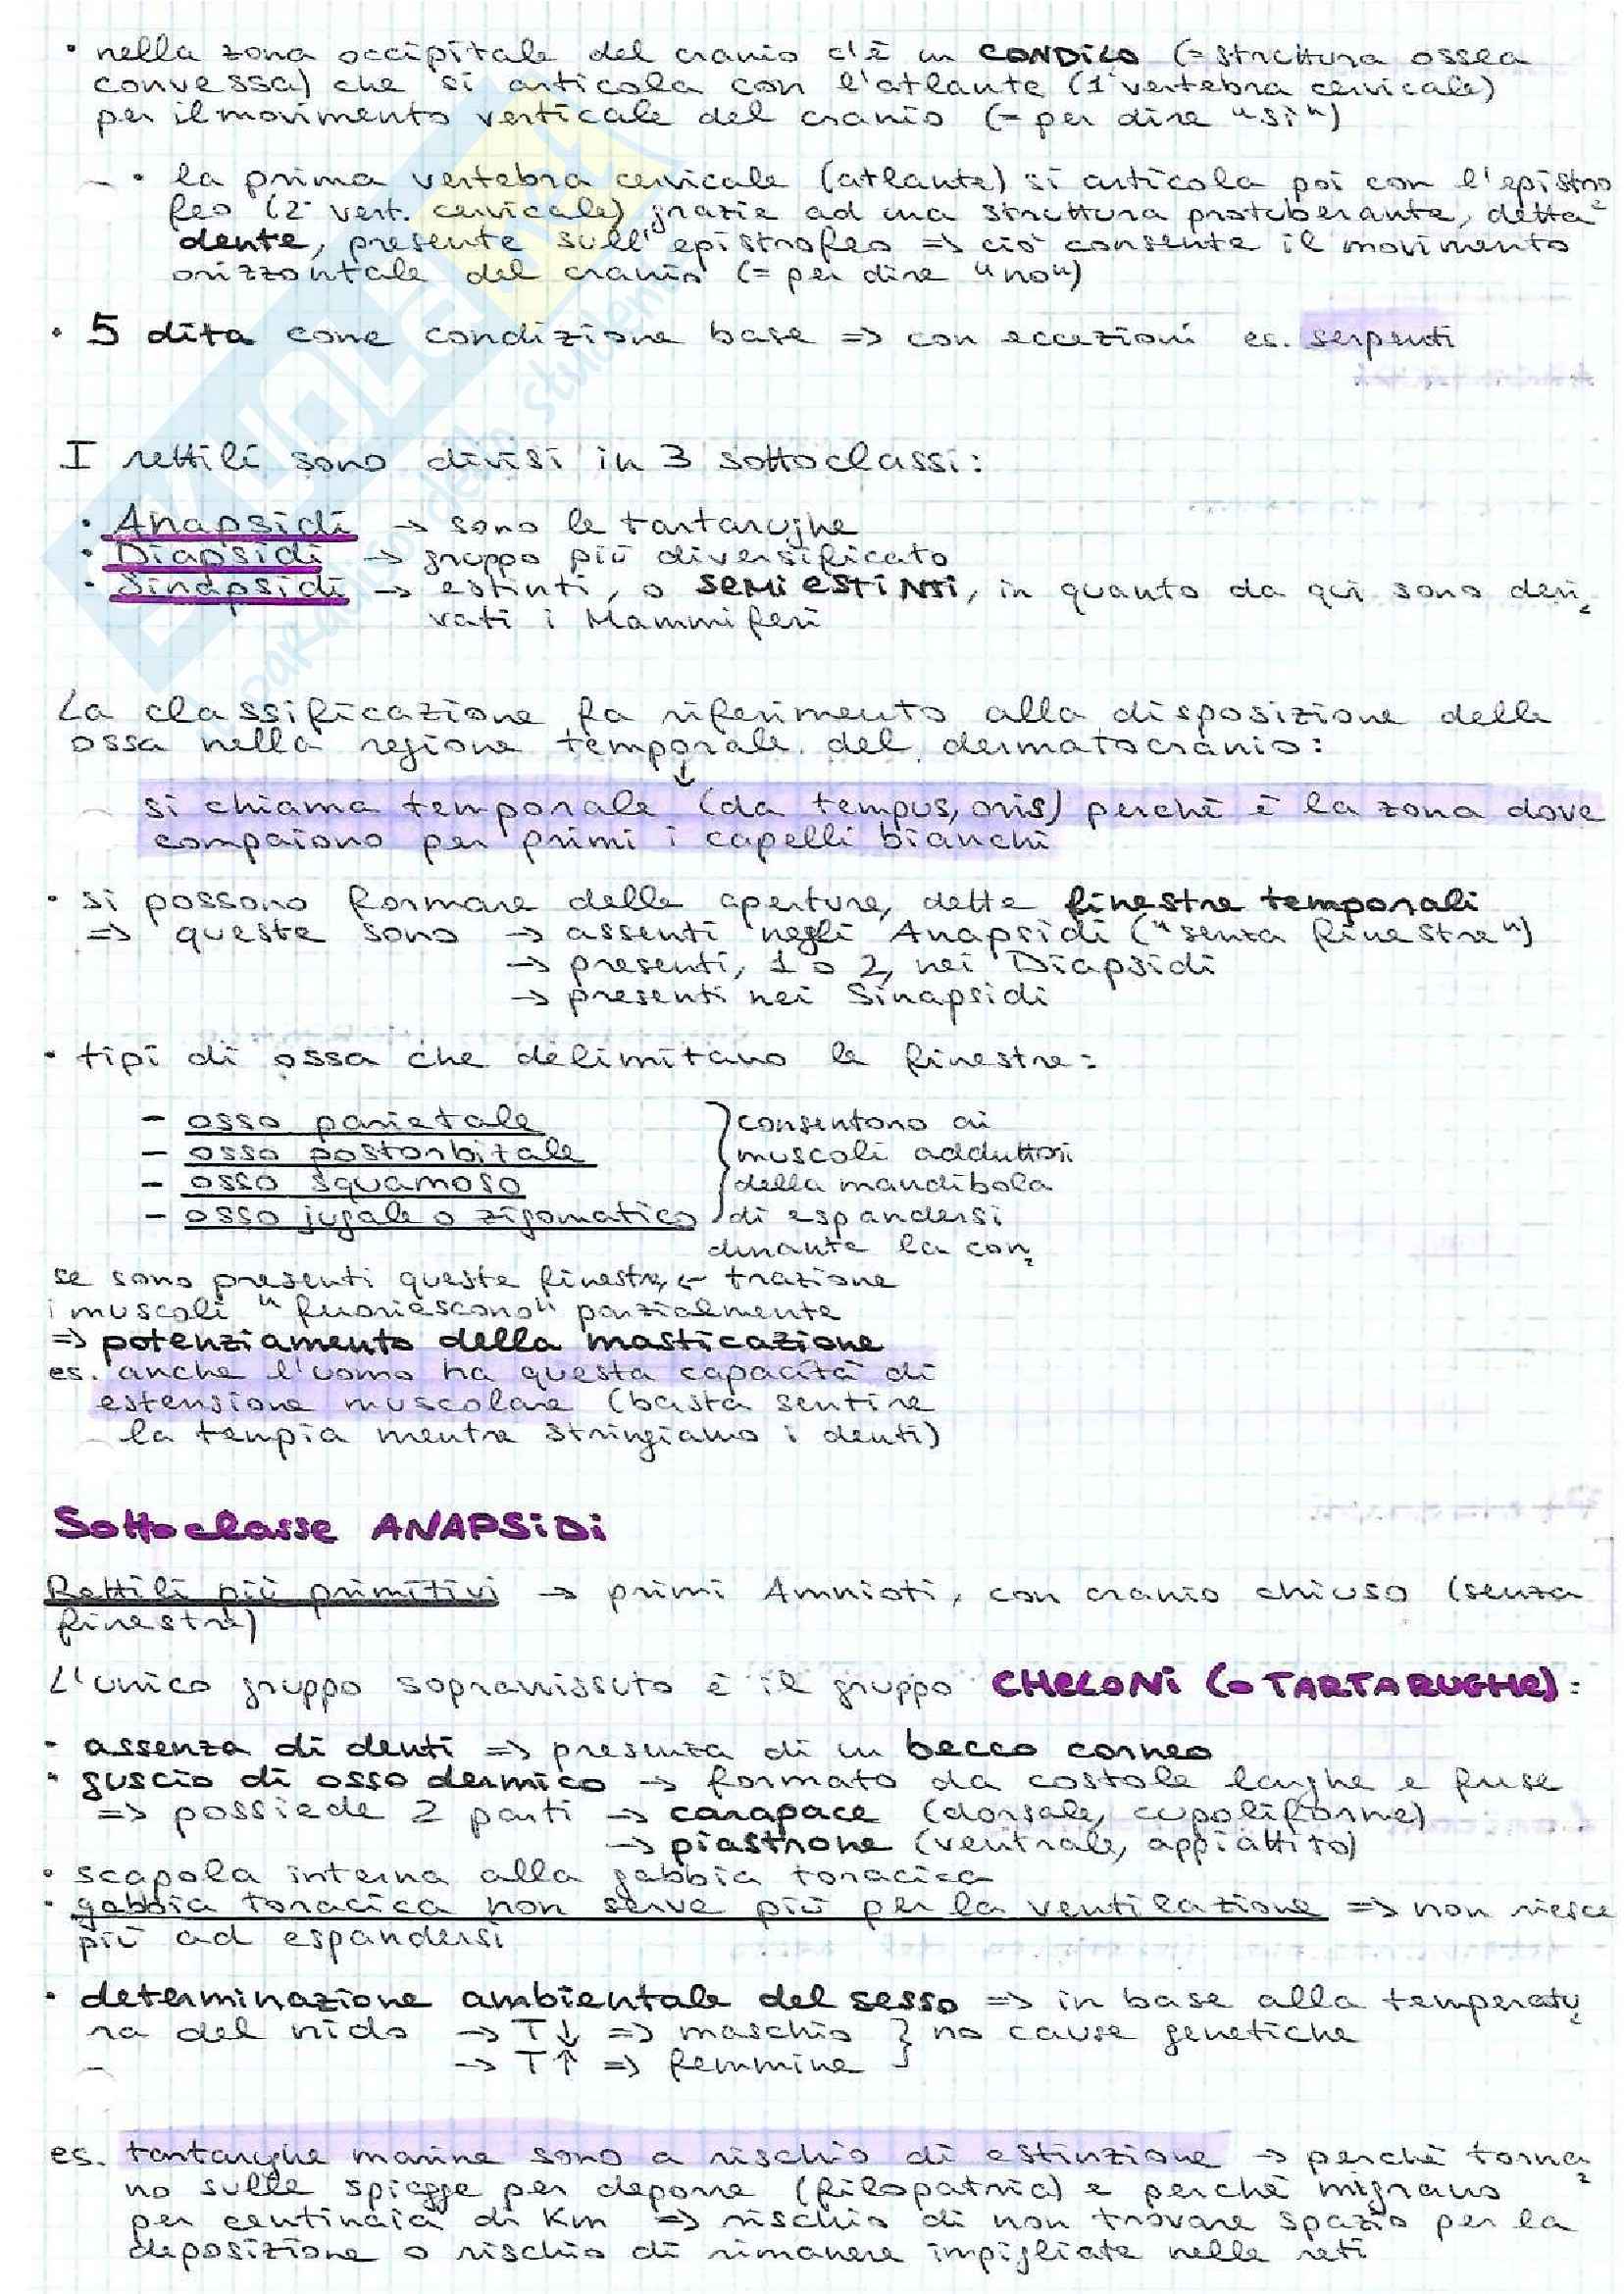 • nella zona occipitale del cranio c'è un CONDILO (= struttura ossea
convessa) che si articola con l'atlante (1ª vertebra cervicale)
per il movimento verticale del cranio (= per dire "si")
• la prima vertebra cervicale (atlante) si articola poi con l'epistro
feo (2ª vert. cervicale) grazie ad una struttura protuberante, detta
dente, presente sull'epistrofeo => ciò consente il movimento
orizzontale del cranio (= per dire "no")
• 5 dita come condizione base => con eccezioni es. serpenti
I rettili sono divisi in 3 sottoclassi:
• Anapsidi → sono le tartarughe
• Diapsidi → gruppo più diversificato
• Sinapsidi → estinti, o SEMIESTINTI, in quanto da qui sono deri
vati i Mammiferi
La classificazione fa riferimento alla disposizione delle
ossa nella regione temporale del dermatocranio:
↓
si chiama temporale (da tempus, oris) perchè è la zona dove
compaiono per primi i capelli bianchi
• si possono formare delle aperture, dette finestre temporali
=> queste sono → assenti negli Anapsidi ("senza finestre")
→ presenti, 1 o 2, nei Diapsidi
→ presenti nei Sinapsidi
• tipi di ossa che delimitano le finestre:
- osso parietale } consentono ai
- osso postorbitale muscoli adduttori
- osso squamoso della mandibola
- osso jugale o zigomatico di espandersi
durante la con
se sono presenti queste finestre, ← trazione
i muscoli "fuoriescono" parzialmente
=> potenziamento della masticazione
es. anche l'uomo ha questa capacità di
estensione muscolare (basta sentire
la tempia mentre stringiamo i denti)
Sottoclasse ANAPSIDI
Rettili più primitivi → primi Amnioti, con cranio chiuso (senza
finestre)
L'unico gruppo sopravvissuto è il gruppo CHELONI (o TARTARUGHE):
• assenza di denti => presenza di un becco corneo
• guscio di osso dermico → formato da costole larghe e fuse
=> possiede 2 parti → carapace (dorsale, cupoliforme)
→ piastrone (ventrale, appiattito)
• scapola interna alla gabbia toracica
• gabbia toracica non serve più per la ventilazione => non riesce
più ad espandersi
• determinazione ambientale del sesso => in base alla temperatu
ra del nido → T↓ => maschio } no cause genetiche
→ T↑ => femmine
es. tartarughe marine sono a rischio di estinzione → perchè torna
no sulle spiagge per deporre (filopatria) e perchè migrano
per centinaia di Km => rischio di non trovare spazio per la
deposizione o rischio di rimanere impigliate nelle reti